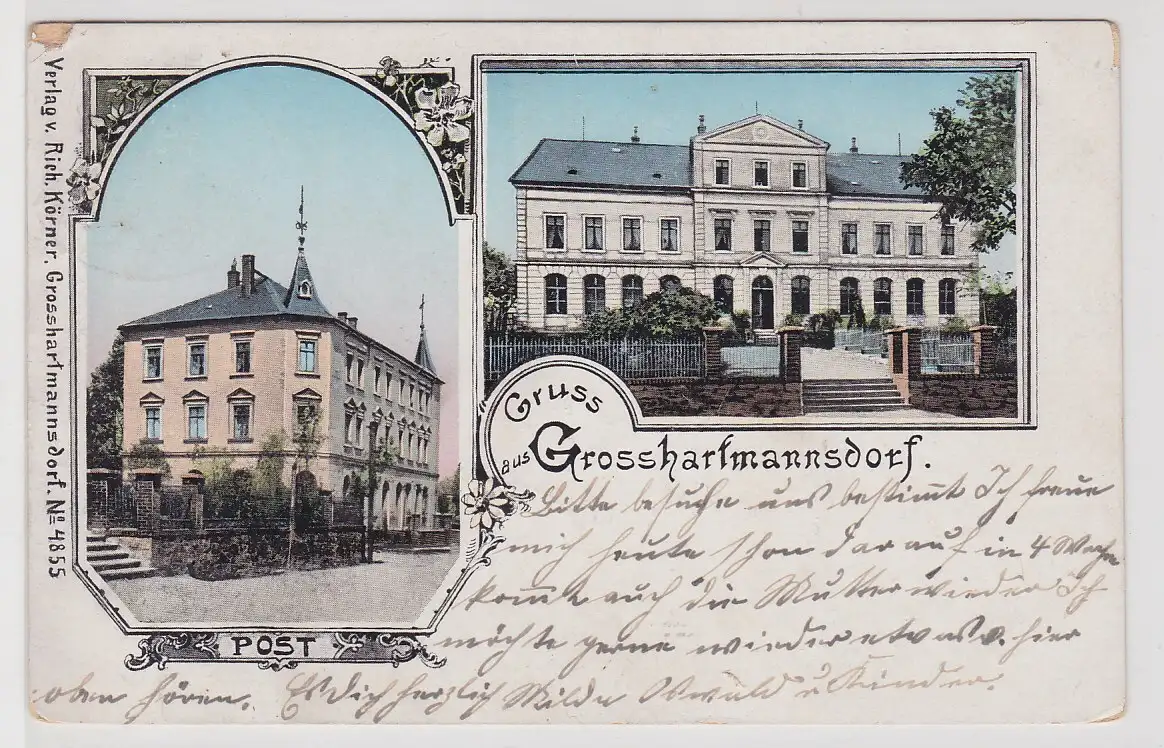 Verlag v. Rich. Körner, Grosshartmannsdorf. No 4855
Gruss
aus Grosshartmannsdorf.
POST
Bitte besuche uns bestimmt Ich freue
mich heute schon darauf in 4 Woche
kommt auch die Mutter wieder Ich
möchte gerne wieder etwas v. hier
oben hören. Es Dich herzlich Milda Oswald u Kinder.